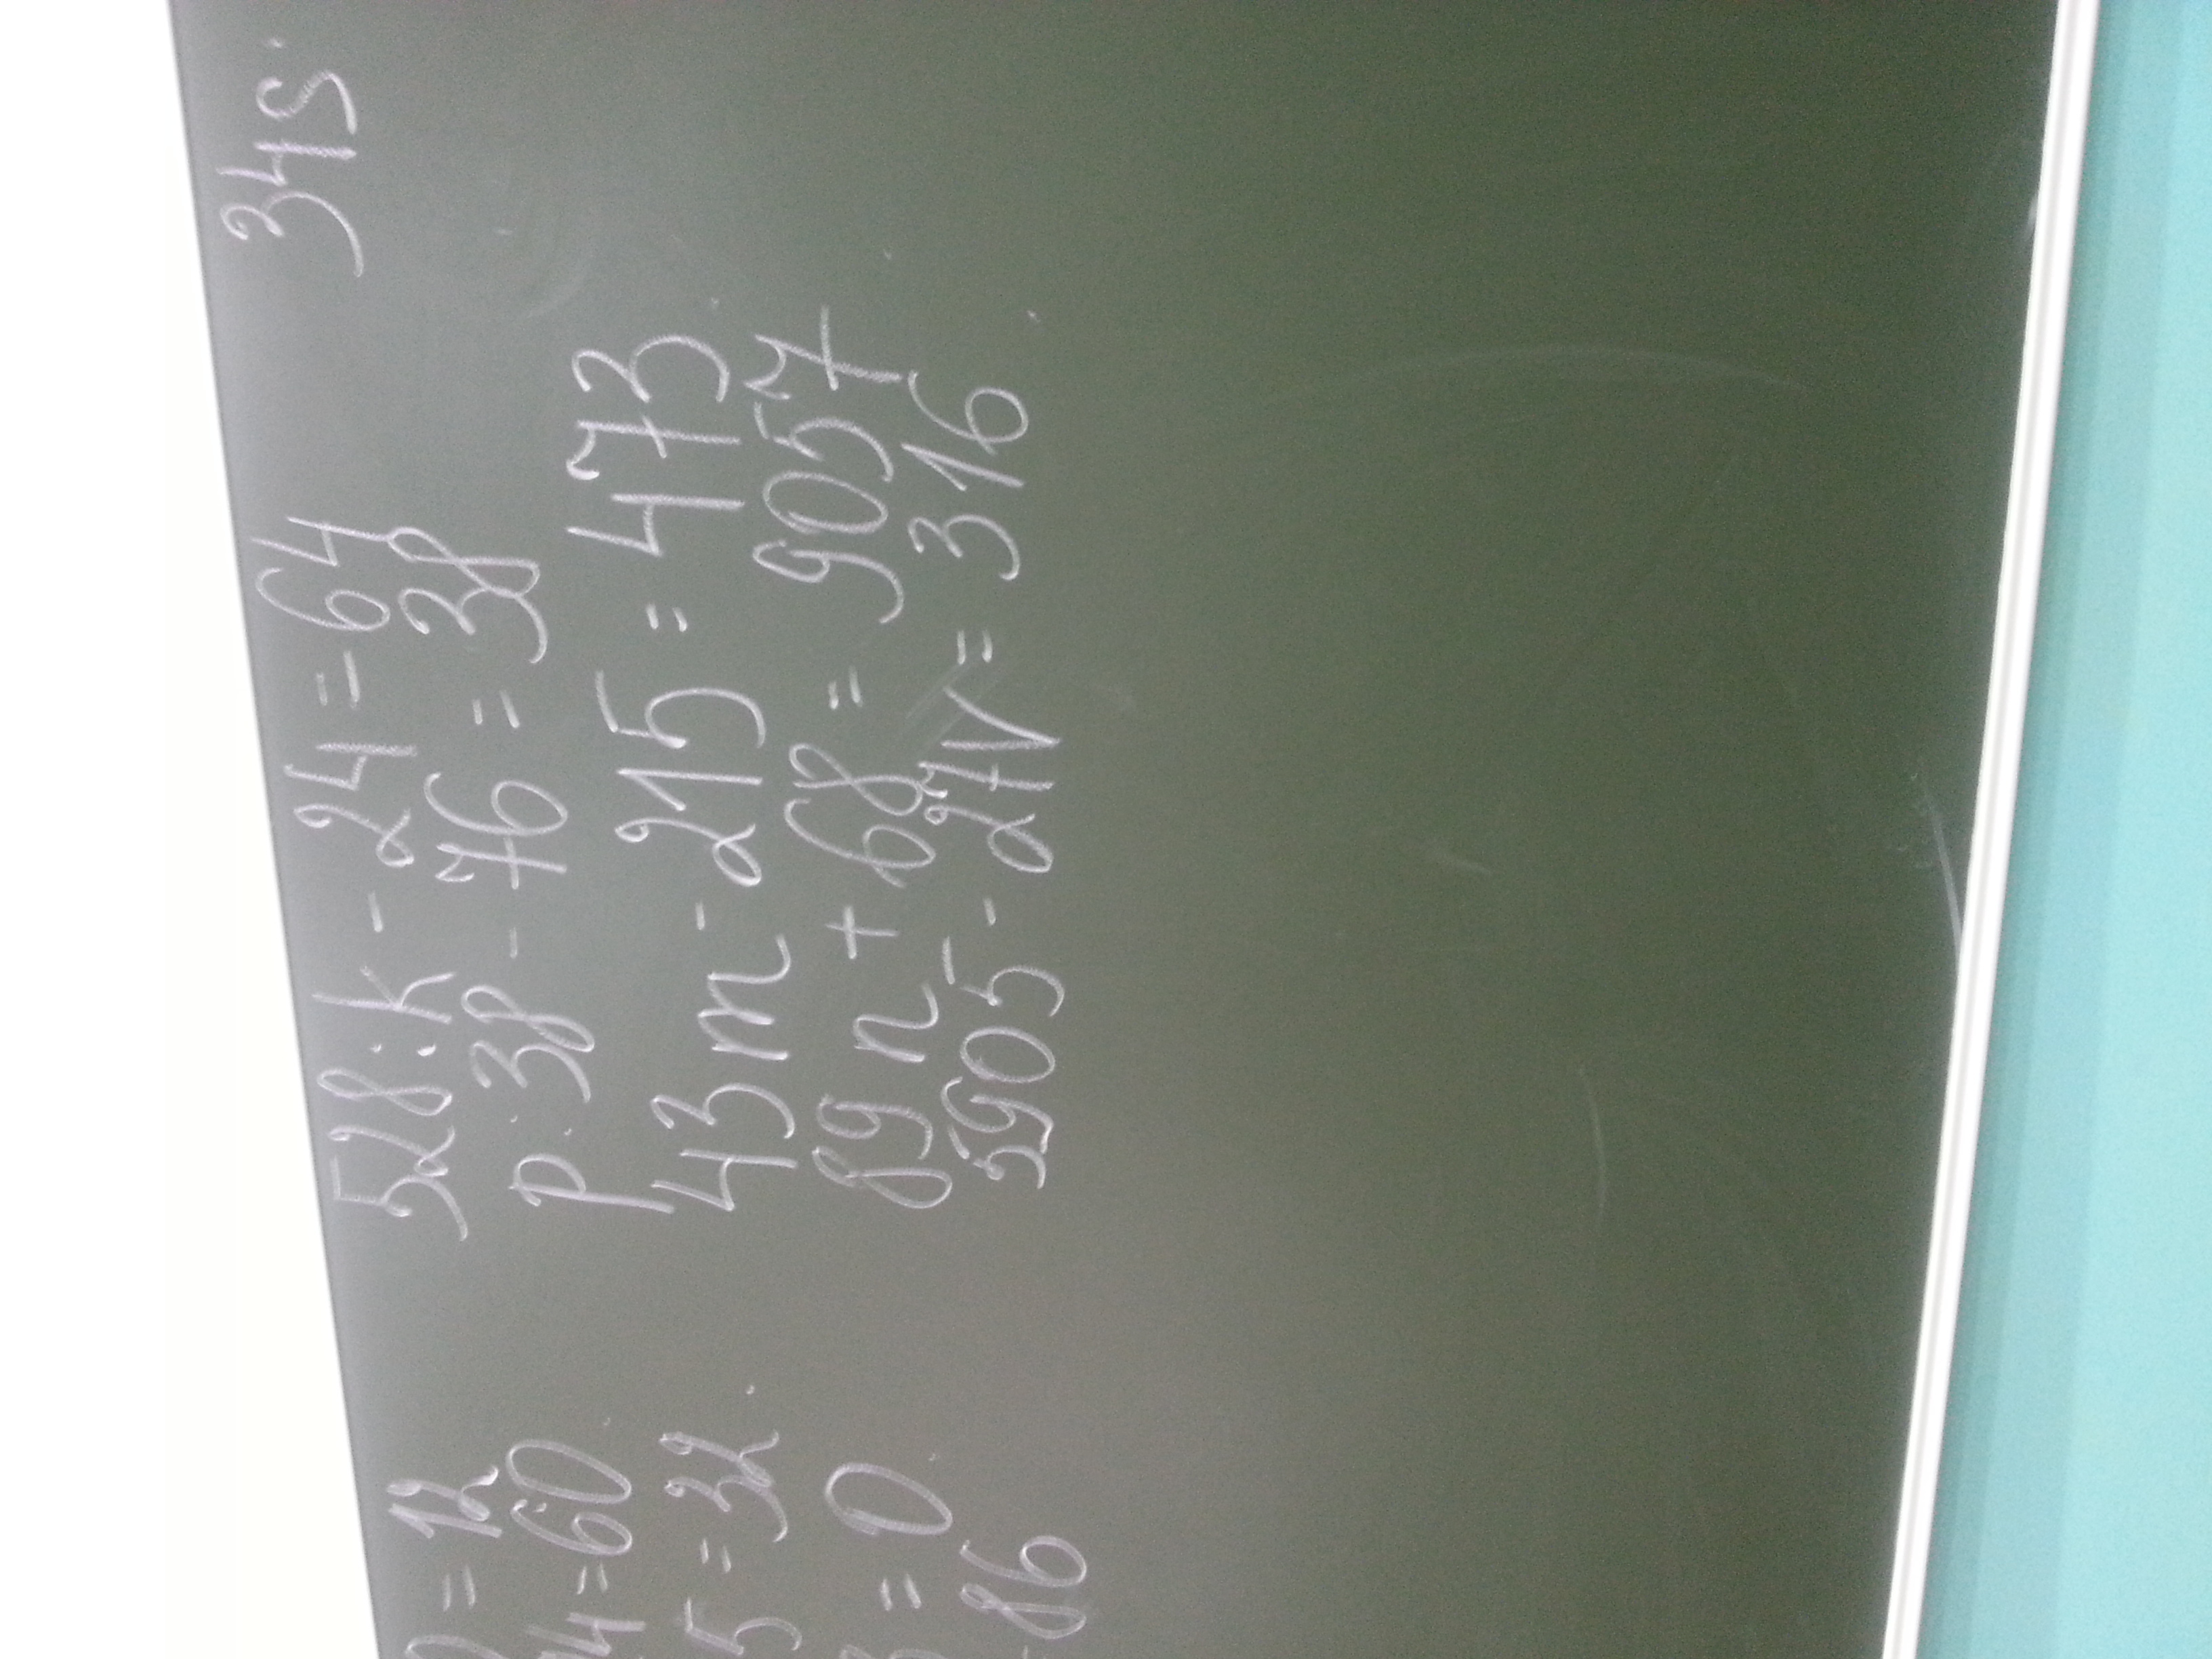 528 : k - 24 = 64
p : 38 - 76 = 38
43 m - 215 = 473
89 n + 68 = 9057
5905 - 27 v = 316
34 s.
= 12
4 = 60
5 = 32
= 0
86